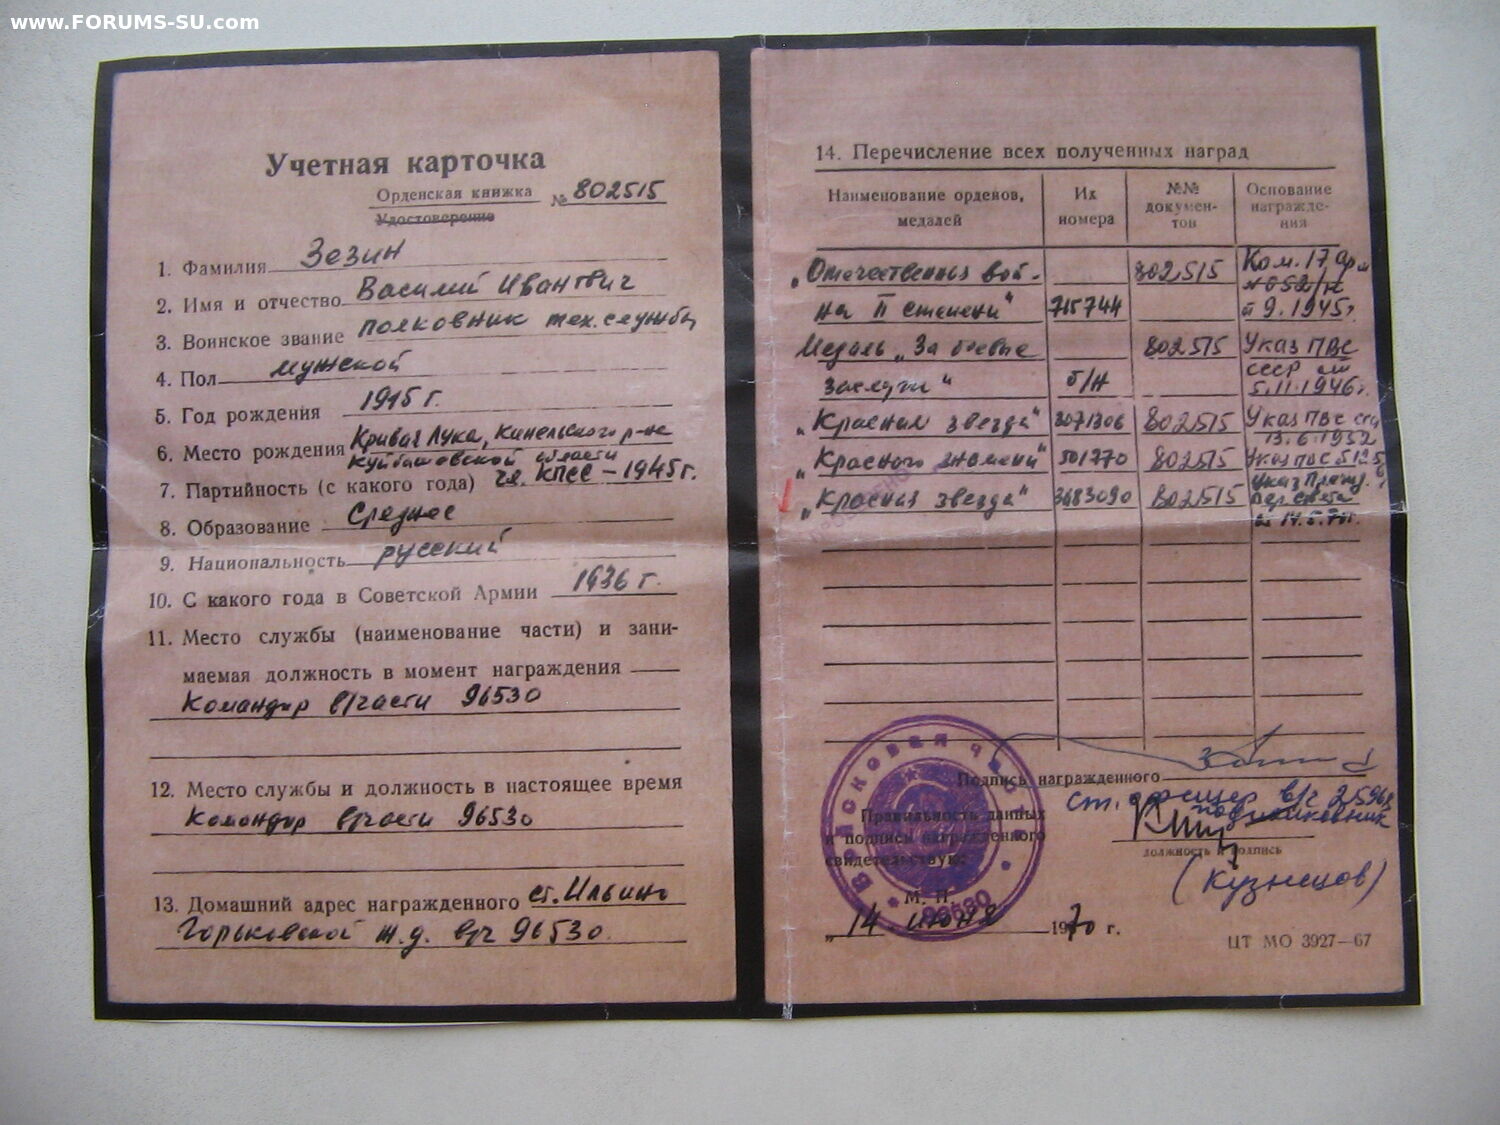 www.FORUMS-SU.com
Учетная карточка
Орденская книжка № 802515
Удостоверение
1. Фамилия Зезин
2. Имя и отчество Василий Иванович
3. Воинское звание полковник тех. службы
4. Пол мужской
5. Год рождения 1915 г.
6. Место рождения Кривая Лука, Кинельского р-на
Куйбышевской области
7. Партийность (с какого года) чл. КПСС – 1945 г.
8. Образование Среднее
9. Национальность русский
10. С какого года в Советской Армии 1936 г.
11. Место службы (наименование части) и зани-
маемая должность в момент награждения
Командир в/части 96530
12. Место службы и должность в настоящее время
Командир в/части 96530
13. Домашний адрес награжденного ст. Ильино
Горьковской ж.д. в/ч 96530
14. Перечисление всех полученных наград
Наименование орденов, медалей
Их номера
№№ докумен-тов
Основание награжде-ния
„Отечественная вой- 802515 Ком. 17 Арм
на II степени" 715744 9.1945г.
Медаль „За боевые 802515 Указ ПВС
заслуги" б/н СССР от 5.11.1946г.
„Красная звезда" 3071306 802515 Указ ПВС ССС
13.6.1952
„Красного знамени" 501770 802515 Указ ПВС
„Красная звезда" 3683090 802515 Указ През.
Вер. Совета
Подпись награжденного
ст. офицер в/ч 25968
подполковник
Правильность данных
и подписи награжденного
свидетельствую:
должность и подпись
(Кузнецов)
М. П.
„14 июня 1970 г.
Войсковая часть
96530
ЦТ МО 3927—67